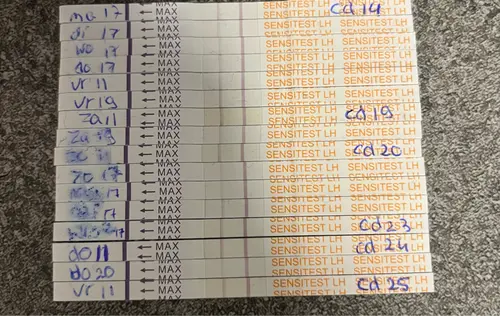 ma 17 MAX SENSITEST LH cd 14
di 17 MAX SENSITEST LH SENSITEST LH
wo 17 MAX SENSITEST LH SENSITEST LH
do 17 MAX SENSITEST LH SENSITEST LH
vr 11 MAX SENSITEST LH SENSITEST LH
vr 19 MAX SENSITEST LH SENSITEST LH
za 11 MAX SENSITEST LH cd 19
za 19 MAX SENSITEST LH SENSITEST LH
zo 11 MAX SENSITEST LH cd 20
zo 17 MAX SENSITEST LH SENSITEST LH
17 MAX SENSITEST LH SENSITEST LH
17 MAX SENSITEST LH SENSITEST LH
17 MAX SENSITEST LH cd 23
do 11 MAX SENSITEST LH cd 24
do 20 MAX SENSITEST LH SENSITEST LH
vr 11 MAX SENSITEST LH cd 25